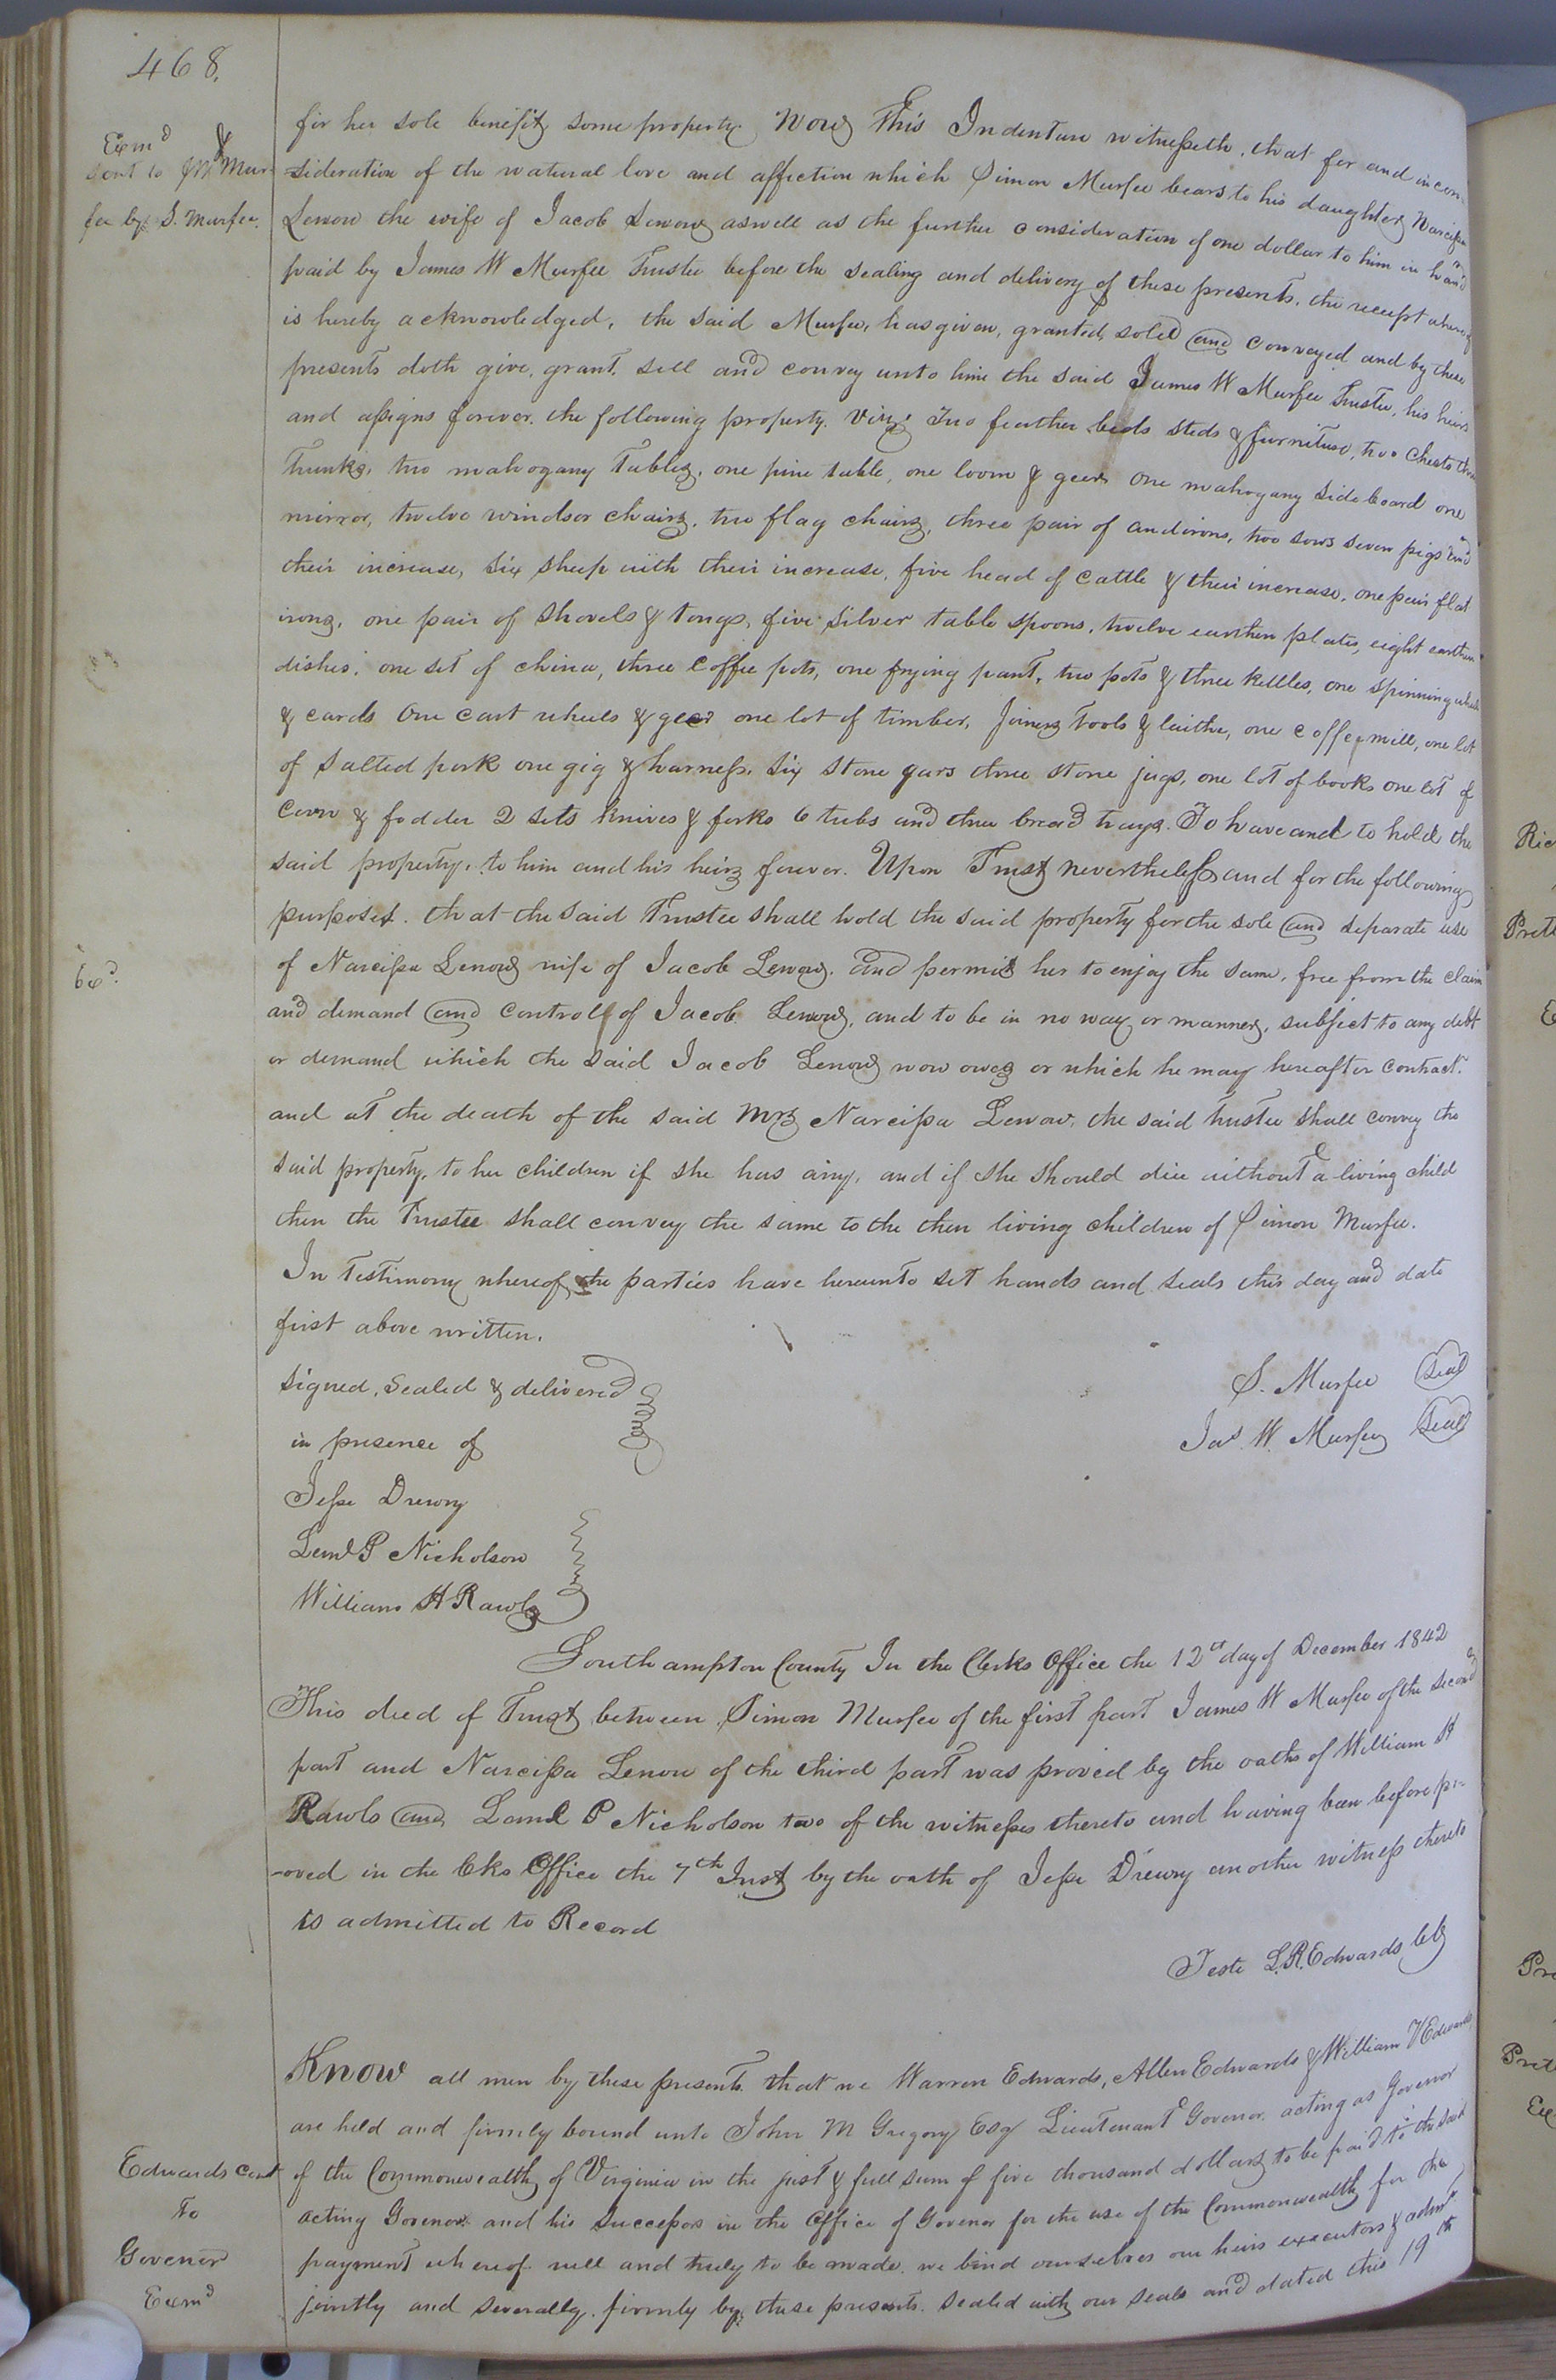 468.
Exmd &
sent to JW Mur-
fee by S. Murfee.
for her sole benefit, some property. Now This Indenture witnesseth, that for and in con-
-sideration of the natural love and affection which Simon Murfee bears to his daughter Narcissa
Lenow the wife of Jacob Lenow aswell as the further consideration of one dollar to him in hand
paid by James W Murfee Trustee before the sealing and delivery of these presents, the receipt whereof
is hereby acknowledged, the said Murfee, has given, granted, sold and conveyed and by these
presents doth give, grant, sell and convey unto him the said James W Murfee Trustee, his heirs
and assigns forever. the following property. Viz: Two feather beds steds & furniture, two chests three
Trunks, two mahogany Tables, one pine table, one loom & geer One mahogany Sideboard one
mirror, twelve windsor chairs, two flag chairs, three pair of andirons, two sows seven pigs and
their increase, six sheep with their increase, five head of cattle & their increase, one pair flat
irons, one pair of shovels & tongs, five silver table spoons, twelve earthen plates, eight earthen
dishes, one set of china, three coffee pots, one frying pan, two pots & three kettles, one spinning wheel
& cards One cart wheels & geer one lot of timber, Joiners Tools & laithe, one coffee mill, one lot
of salted pork one gig & harness, six stone gars three stone jugs, one lot of books one lot of
Corn & fodder 2 sets knives & forks 6 tubs and three bread trays. To have and to hold the
said property, to him and his heirs forever. Upon Trust nevertheless and for the following
purposes. that the said Trustee shall hold the said property for the sole and separate use
of Narcissa Lenow wife of Jacob Lenow. and permit her to enjoy the same, free from the claim
and demand and controll of Jacob Lenow, and to be in no way or manner, subject to any debt
or demand which the said Jacob Lenow now owes or which he may hereafter contract.
and at the death of the said Mrs Narcissa Lenow, the said trustee shall convey the
said property, to her children if she has any, and if she should die without a living child
then the Trustee shall convey the same to the then living children of Simon Murfee.
In Testimony whereof, the parties have hereunto set hands and seals this day and date
first above written.
Signed, Sealed & delivered
in presence of
S. Murfee Seal
Jas W. Murfee Seal
Jesse Drewry
Leml P Nicholson
William H Rawls
Southampton County In the Clerks Office the 12th day of December 1842
This deed of Trust between Simon Murfee of the first part James W Murfee of the second
part and Narcissa Lenow of the third part was proved by the oaths of William H
Rawls and Leml P Nicholson two of the witnesses thereto and having been before pr-
-oved in the Cks Office the 7th Inst by the oath of Jesse Drewry another witness thereto
is admitted to Record
Teste L.R. Edwards Clk
Know all men by these presents that we Warren Edwards, Allen Edwards & William H Edwards
are held and firmly bound unto John M Gregory Esq Lieutenant Govenor acting as Govenor
Edwards Const
To
Govenor
Exmd
of the Commonwealth of Virginia in the just & full sum of five thousand dollars to be paid to the said
acting Govenor and his Successors in the Office of Govenor for the use of the Commonwealth, for the
payment whereof well and truly to be made. we bind ourselves our heirs executors & admrs
jointly and severally. firmly by these presents. sealed with our seals and dated this 19th